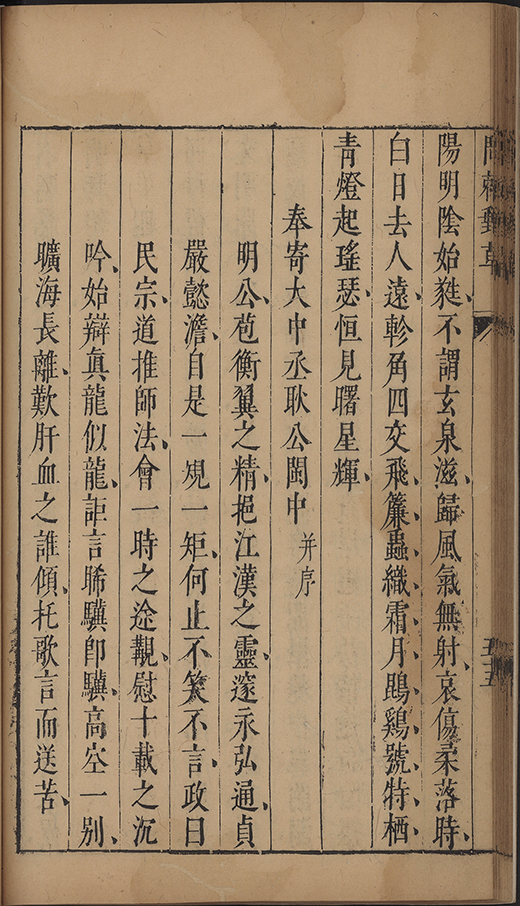 問棘郵草
陽明陰始甤不謂玄泉滋歸風氣無射哀傷柔落時
白日去人遠軫角四交飛簾蟲織霜月鵾鷄號特栖
青燈起瑤瑟恒見曙星輝
奉寄大中丞耿公閩中 并序
明公苞衡翼之精挹江漢之靈邃永弘通貞
嚴懿澹自是一規一矩何止不笑不言政曰
民宗道推師法會一時之途覯慰十載之沉
吟始辯真龍似龍詎言睎驥卽驥高空一別
曠海長離歎肝血之誰傾托歌言而送苦